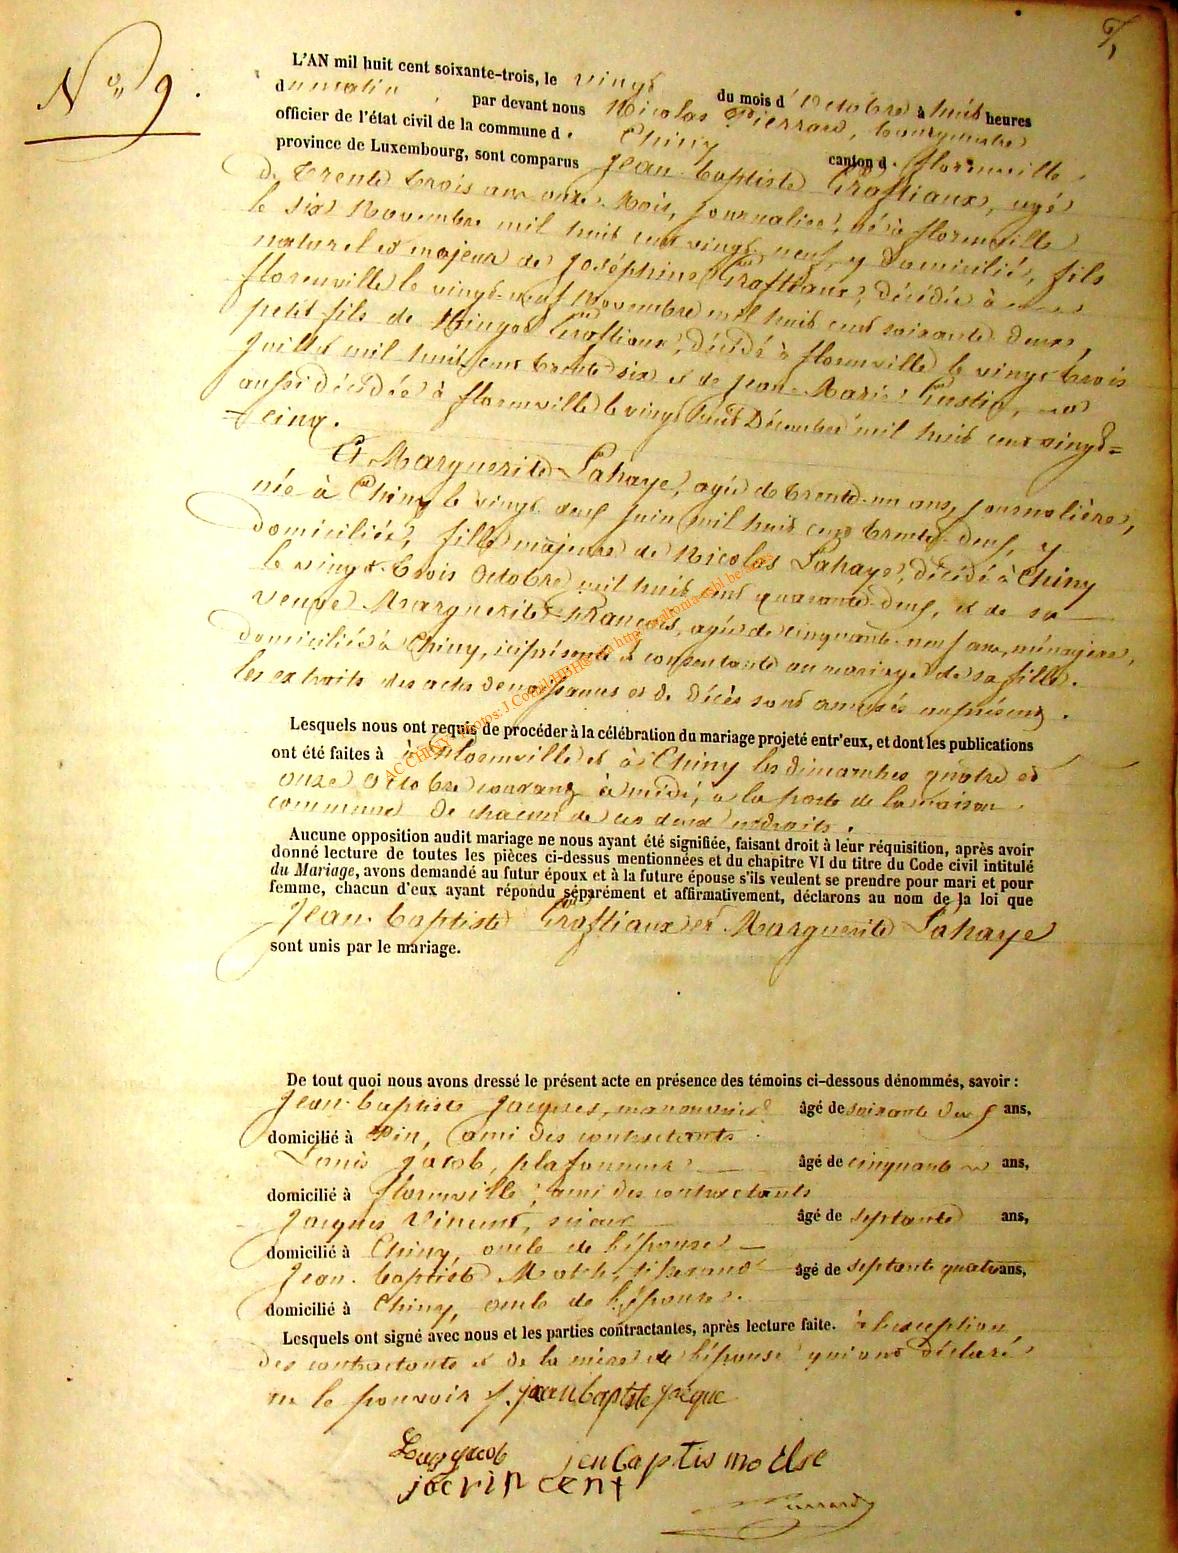 7,
N° 9.
L'AN mil huit cent soixante-trois, le vingt du mois d' Octobre à huit heures
du matin, par devant nous Nicolas Pierrard, bourgmestre
officier de l'état civil de la commune d e Chiny canton d e florenville
province de Luxembourg, sont comparus Jean-baptiste Croftiaux, agé
de trente trois ans onze Mois, journalier, né à florenville
le six Novembre mil huit cent vingt-neuf, y domicilié, fils
naturel et majeur de Joséphine Croftiaux, décédée à
florenville le vingt-neuf Novembre mil huit cent soixante deux,
petit-fils de Croftiaux, décédé à florenville le vingt trois
juillet mil huit cent trente six et de Jeanne-Marie
aussi décédée à florenville le vingt huit Décembre mil huit cent vingt=
=cinq.
Et Marguerite Lahaye, agée de trente-un ans, journalière,
née à Chiny le vingt neuf juin mil huit cent trente-deux, y
domiciliée, fille majeure de Nicolas Lahaye, décédé à Chiny
le vingt-trois Octobre mil huit cent quarante-neuf, et de sa
veuve Marguerite François, agée de cinquante-neuf ans, ménagère,
domiciliée à Chiny, ici présente et consentante au mariage de sa fille.
les extraits des actes de naissances et de décès sont annexés au présent.
Lesquels nous ont requis de procéder à la célébration du mariage projeté entr'eux, et dont les publications
ont été faites à à florenville et à Chiny les dimanches quatre et
onze Octobre courant à midi, à la porte de la maison
commune de chacun de ces deux endroits.
Aucune opposition audit mariage ne nous ayant été signifiée, faisant droit à leur réquisition, après avoir
donné lecture de toutes les pièces ci-dessus mentionnées et du chapitre VI du titre du Code civil intitulé
du Mariage, avons demandé au futur époux et à la future épouse s'ils veulent se prendre pour mari et pour
femme, chacun d'eux ayant répondu séparément et affirmativement, déclarons au nom de la loi que
Jean-baptiste Croftiaux et Marguerite Lahaye
sont unis par le mariage.
De tout quoi nous avons dressé le présent acte en présence des témoins ci-dessous dénommés, savoir :
Jean-baptiste Jacques, manouvrier âgé de soixante ans,
domicilié à Pin, ami des contractants.
Louis Jacob, plafonneur âgé de cinquante ans,
domicilié à florenville, ami des contractants
Jacques Vincent, scieur âgé de septante ans,
domicilié à Chiny, oncle de l'épouse
Jean-baptiste tisserand âgé de septante quatre ans,
domicilié à Chiny, oncle de l'épouse.
Lesquels ont signé avec nous et les parties contractantes, après lecture faite. à l'exception
des contractants et de la mère de l'épouse qui ont déclaré
ne le pouvoir /. jean baptiste jacque
Louis jacob jen baptis
jac vincent
Pierrard
AC CHINY - Photos: J.Collard